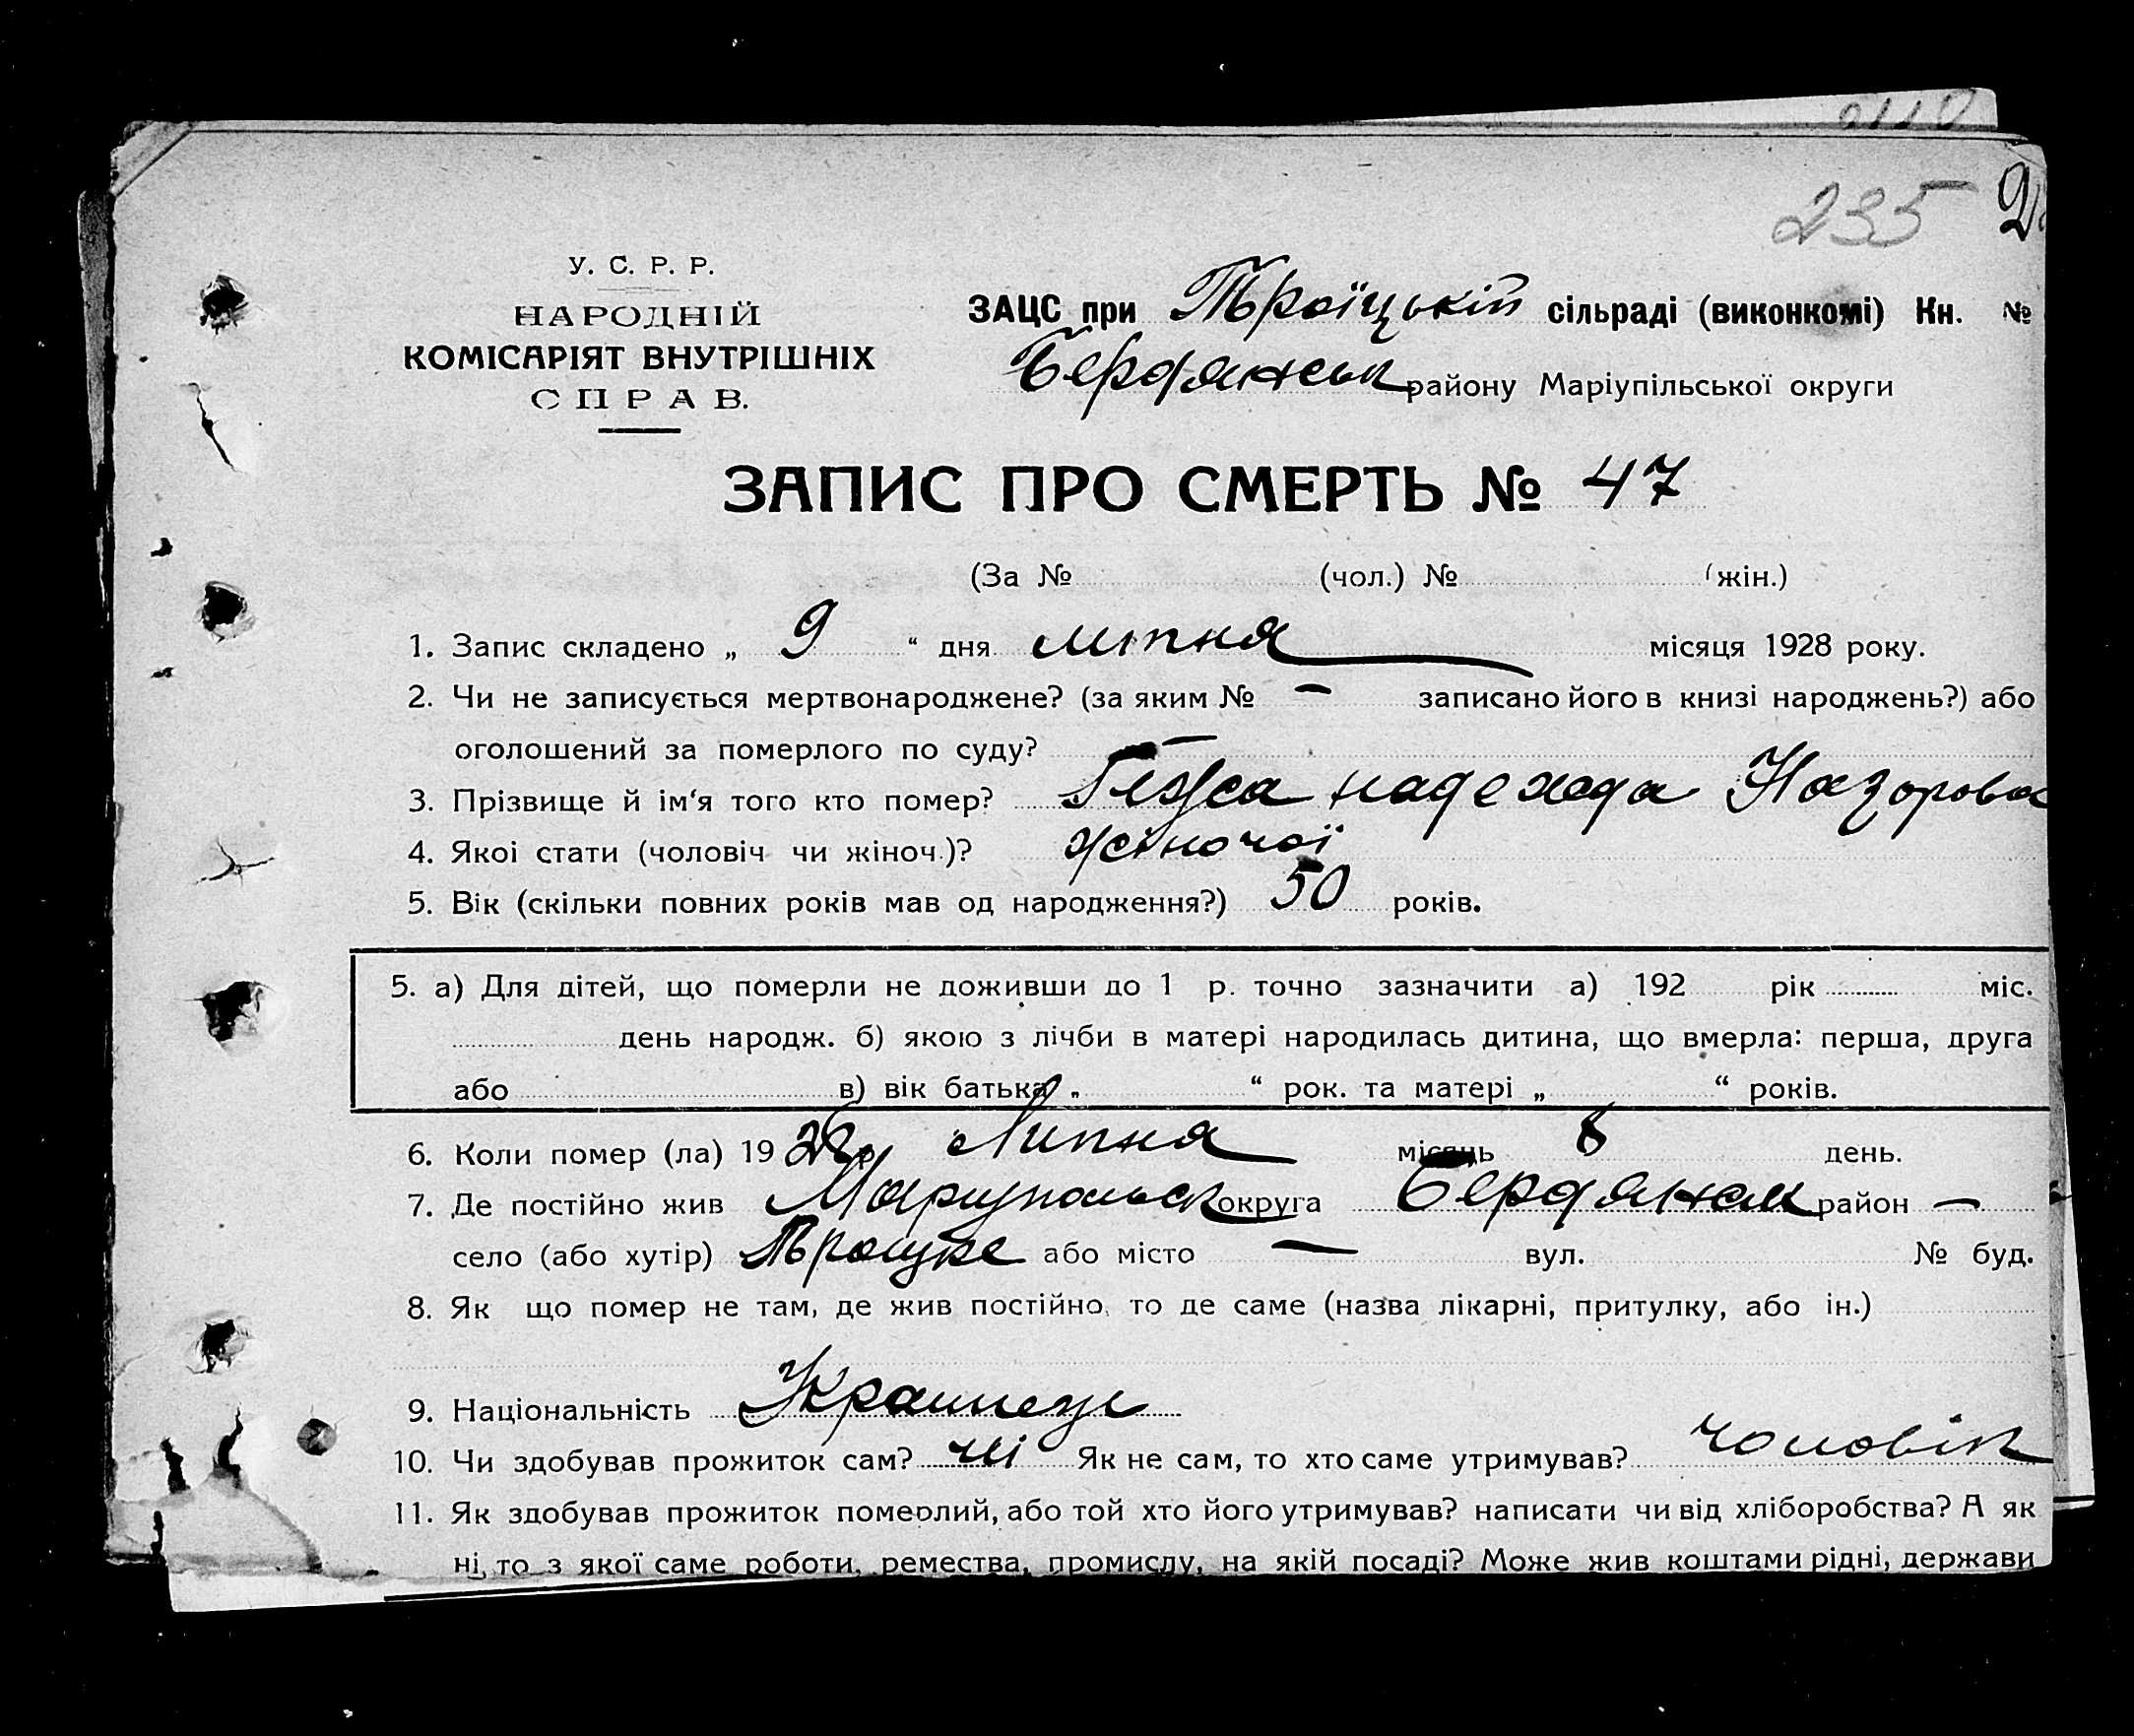 235
У. С. Р. Р.
НАРОДНІЙ
КОМІСАРІЯТ ВНУТРІШНІХ
СПРАВ.
ЗАЦС при Троїцькій сільраді (виконкомі) Кн. №
Бердянськ району Маріупільської округи
ЗАПИС ПРО СМЕРТЬ № 47
(За № (чол.) № (жін.)
1. Запис складено „ 9 “ дня липня місяця 1928 року.
2. Чи не записується мертвонароджене? (за яким № — записано його в книзі народжень?) або
оголошений за померлого по суду? —
3. Прізвище й ім‘я того кто помер? надежда Назарова
4. Якоі стати (чоловіч чи жіноч.)? жіночої
5. Вік (скільки повних років мав од народження?) 50 років.
5. а) Для дітей, що померли не доживши до 1 р. точно зазначити а) 192 рік міс.
день народж. б) якою з лічби в матері народилась дитина, що вмерла: перша, друга
або в) вік батька „ “ рок. та матері „ “ років.
6. Коли помер (ла) 19 28 р Липня місяць 8 день.
7. Де постійно жив Мариупольск округа Бердянськ район —
село (або хутір) Троицке або місто — вул. № буд.
8. Як що помер не там, де жив постійно, то де саме (назва лікарні, притулку, або ін.)
9. Національність Украинець
10. Чи здобував прожиток сам? ні Як не сам, то хто саме утримував? чоловік
11. Як здобував прожиток померлий, або той хто його утримував? написати чи від хліборобства? А як
ні, то з якої саме роботи, ремества, промислу, на якій посаді? Може жив коштами рідні, держави